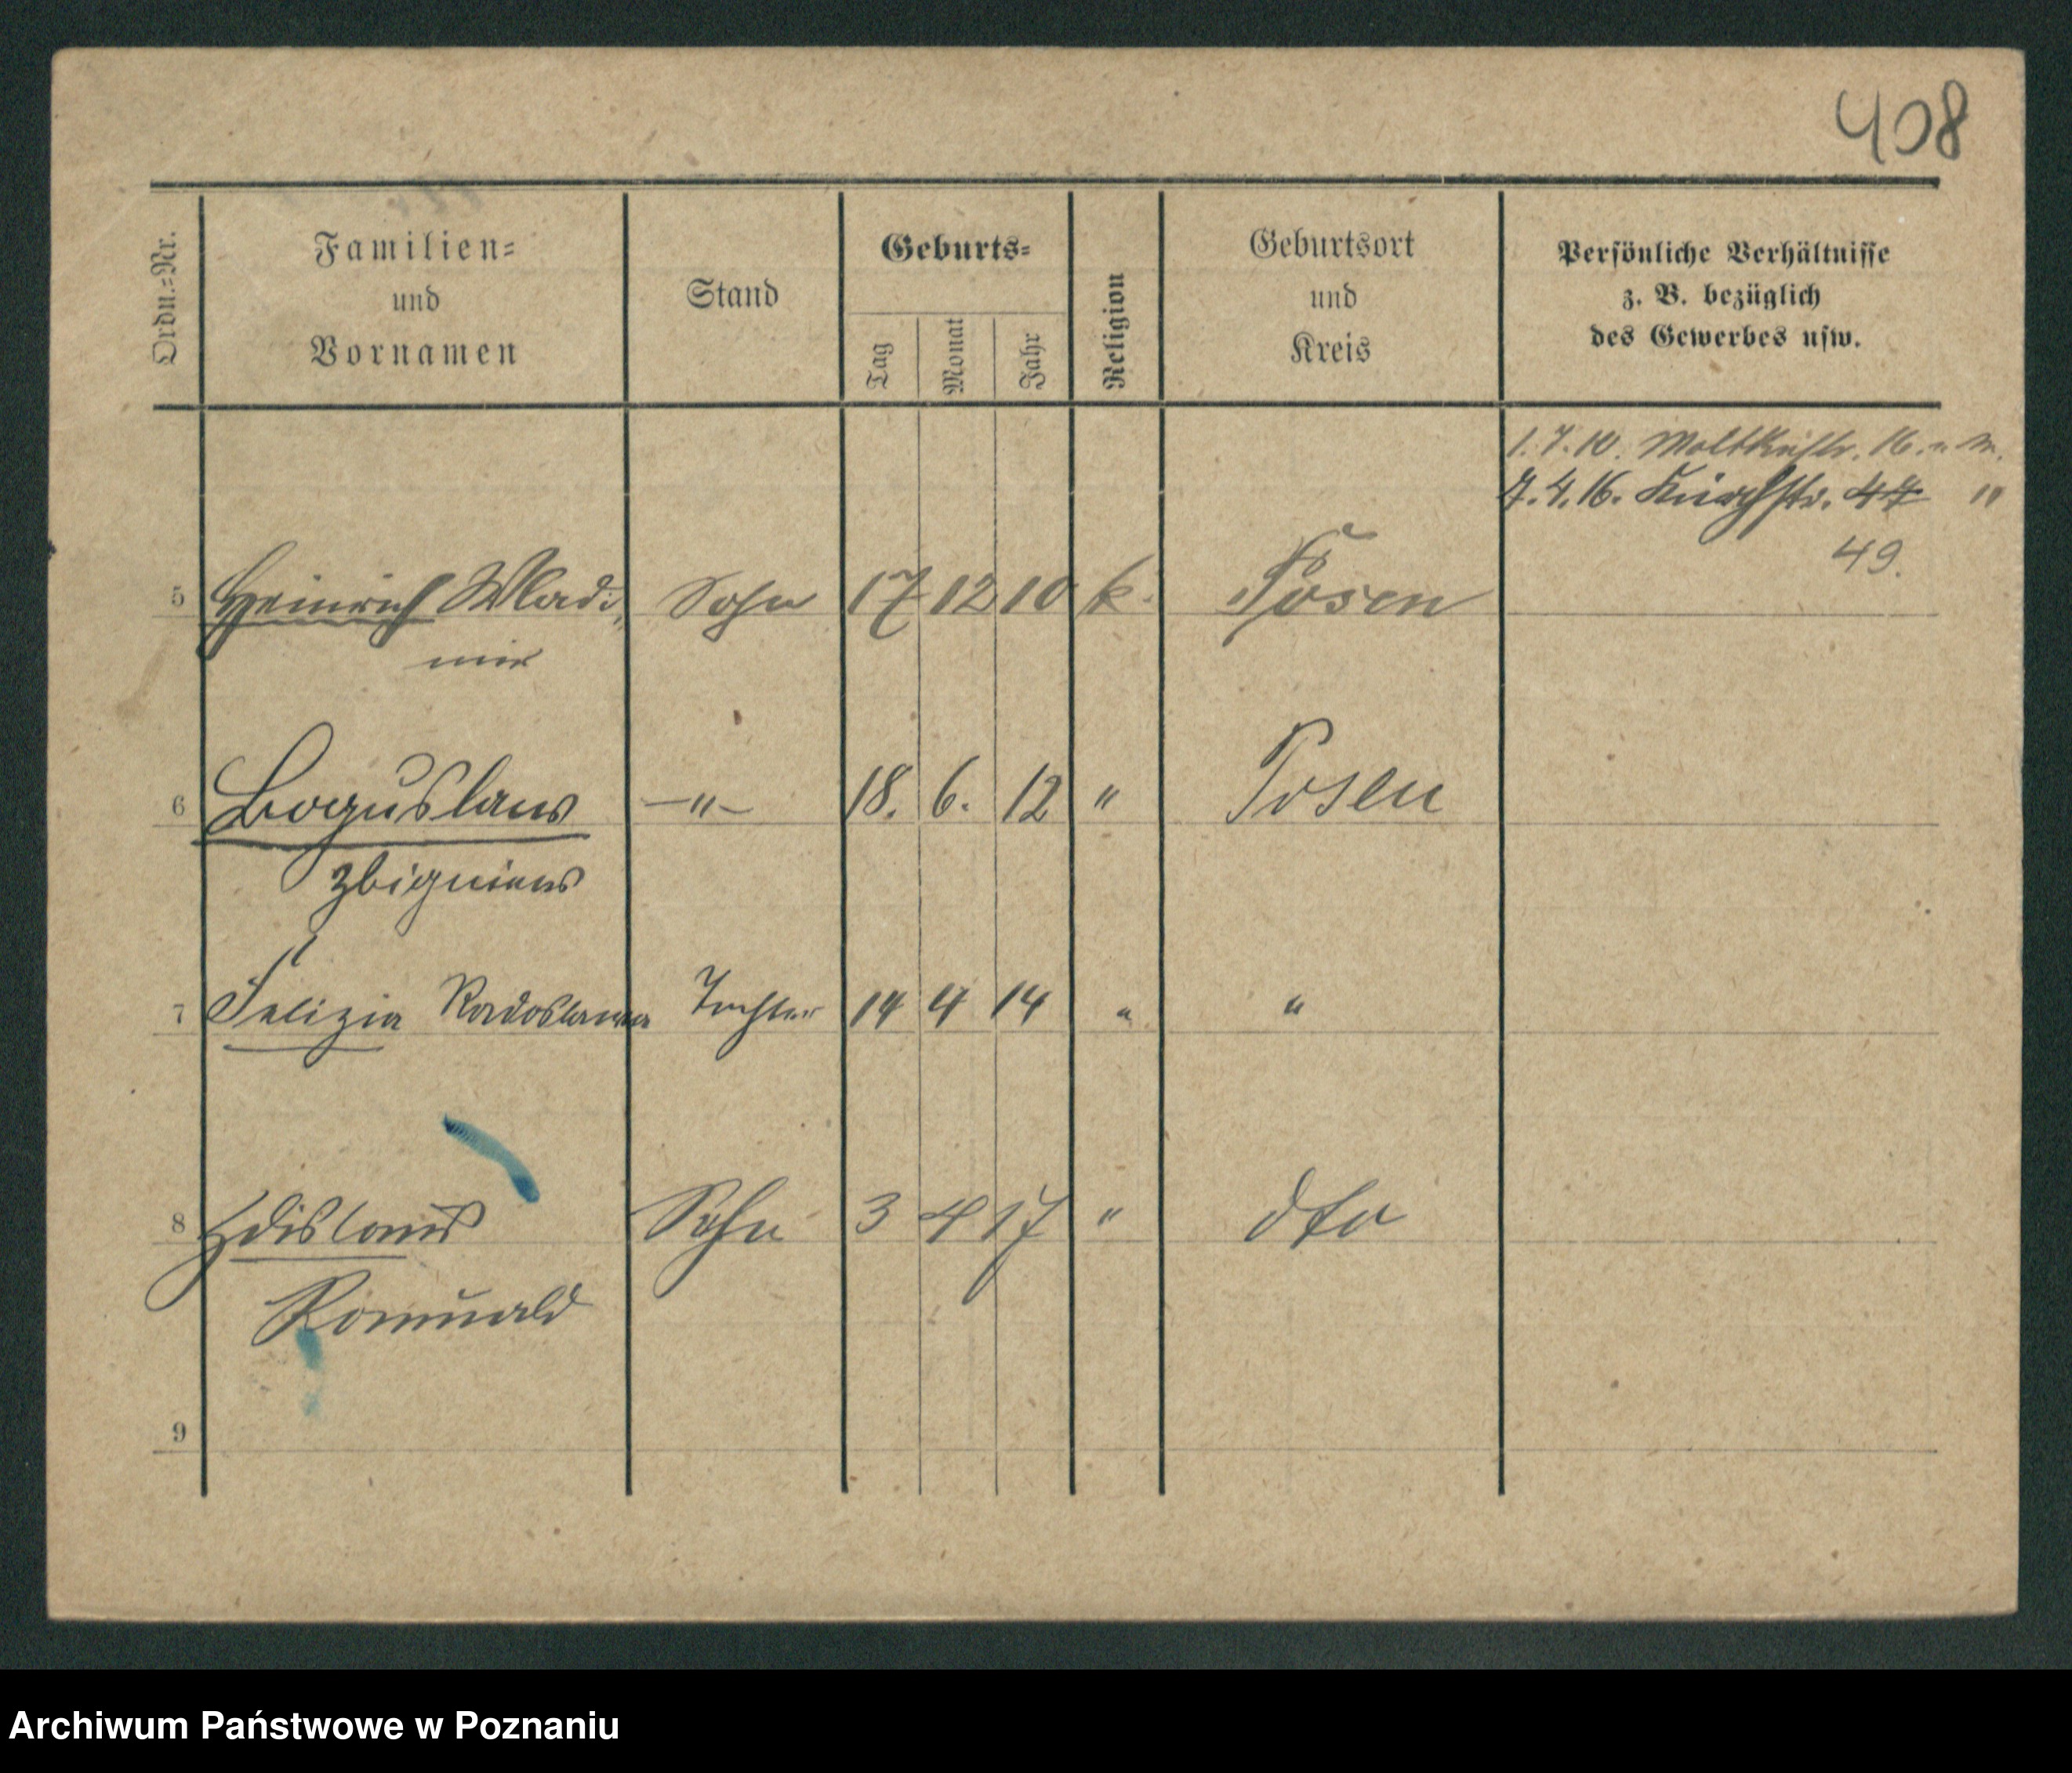 408
Ordn.-Nr.
Familien-
und
Vornamen
Stand
Geburts-
Tag
Monat
Jahr
Religion
Geburtsort
und
Kreis
Persönliche Verhältnisse
z. B. bezüglich
des Gewerbes usw.
1.7.10. Moltkestr. 16.
7.4.16. Kirchstr. 44 "
49.
5 Heinrich Wladi- Sohn 17 12 10 k. Posen
mir
6 Boguslaus —"— 18. 6. 12 " Posen
Zbigniews
7 Felizia Radoslawa Tochter 14 4 14 " "
8 Zdislaus Sohn 3 4 17 " dto
Romuald
9
Archiwum Państwowe w Poznaniu